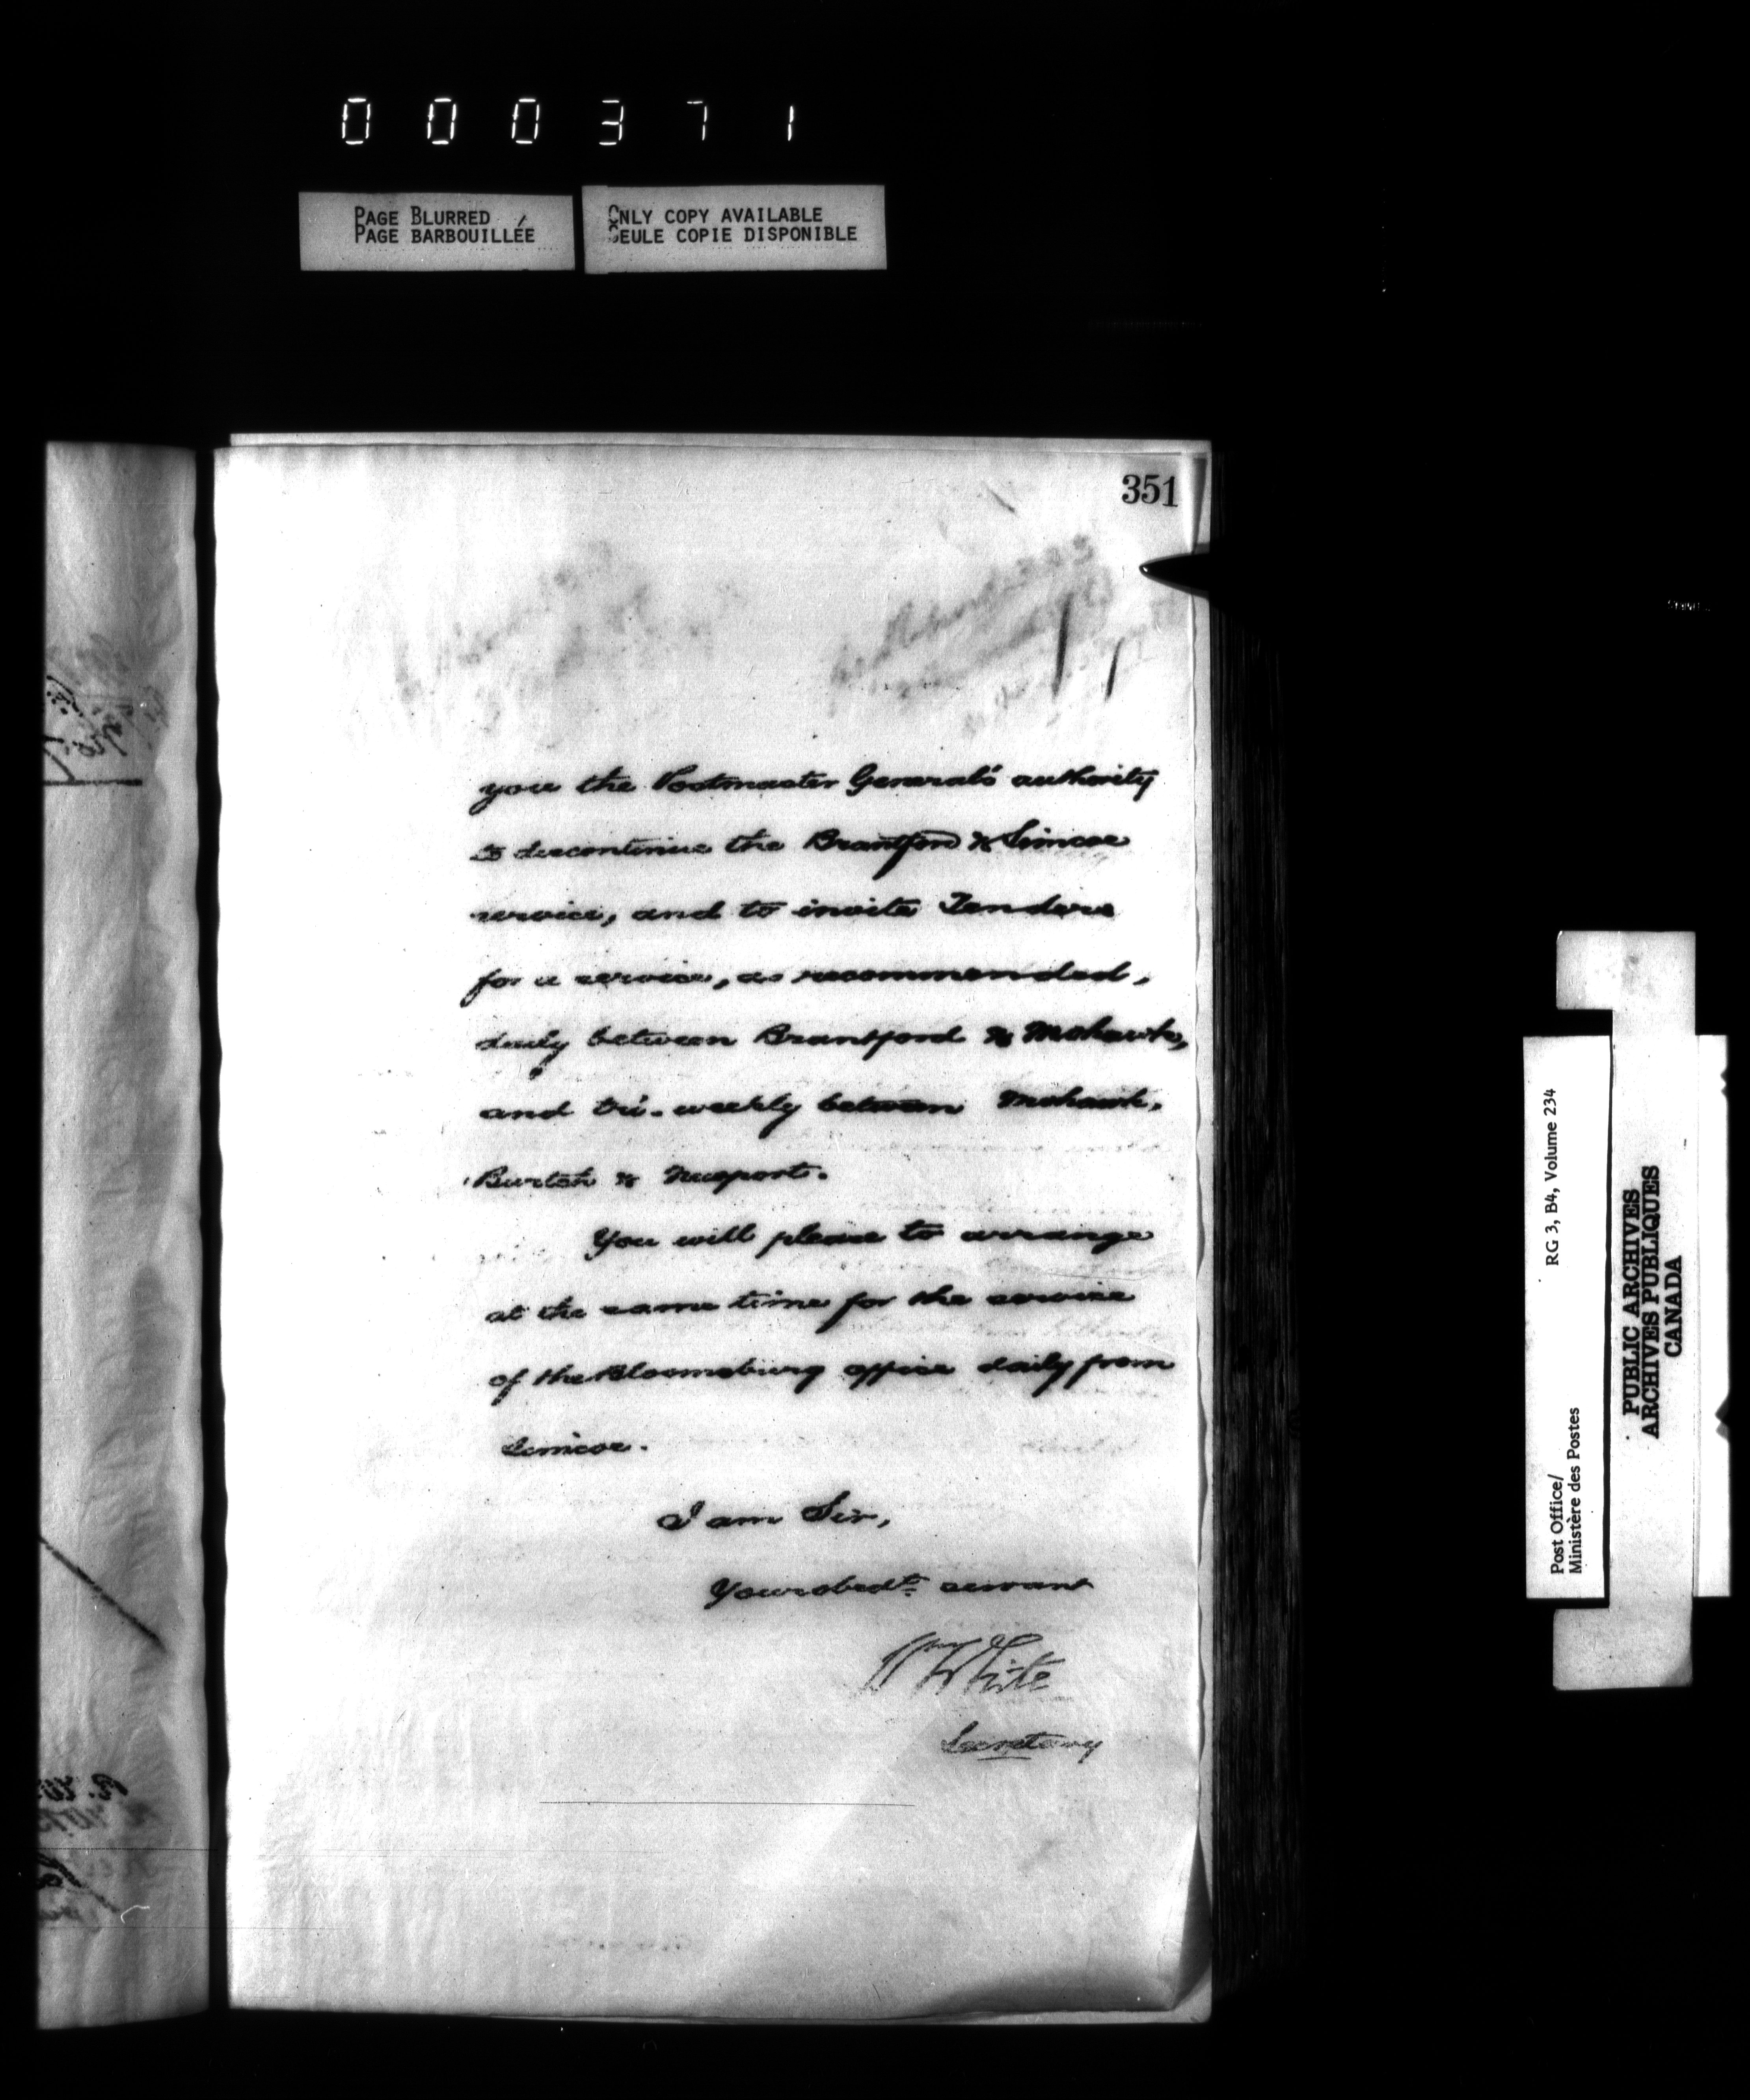 000371
PAGE BLURRED
PAGE BARBOUILLÉE
ONLY COPY AVAILABLE
SEULE COPIE DISPONIBLE
351
you the Postmaster General's authority
to discontinue the Brantford & Simcoe
service, and to invite Tenders
for a service, as recommended,
daily between Brantford & Mohawk,
and tri-weekly between Mohawk,
Burtch & Newport.
You will please to arrange
at the same time for the service
of the Bloomsburg office daily from
Simcoe.
I am Sir,
Your obedt. servant
Wm White
Secretary
Post Office/
Ministère des Postes
RG 3, B4, Volume 234
PUBLIC ARCHIVES
ARCHIVES PUBLIQUES
CANADA